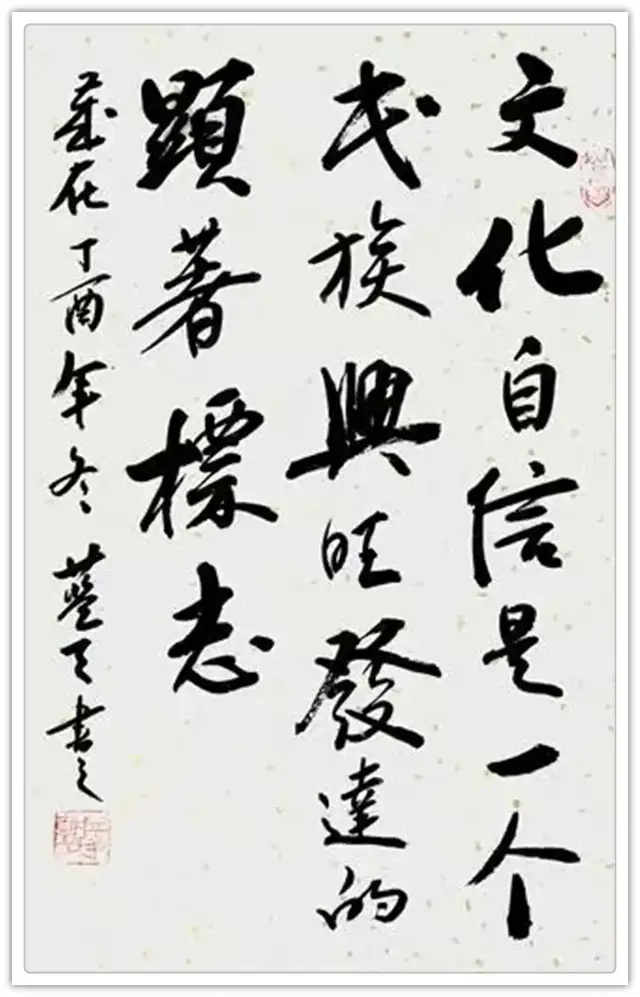 文化自信是一个
民族興旺發達的
顯著標志
歲在丁酉年冬藍天書之